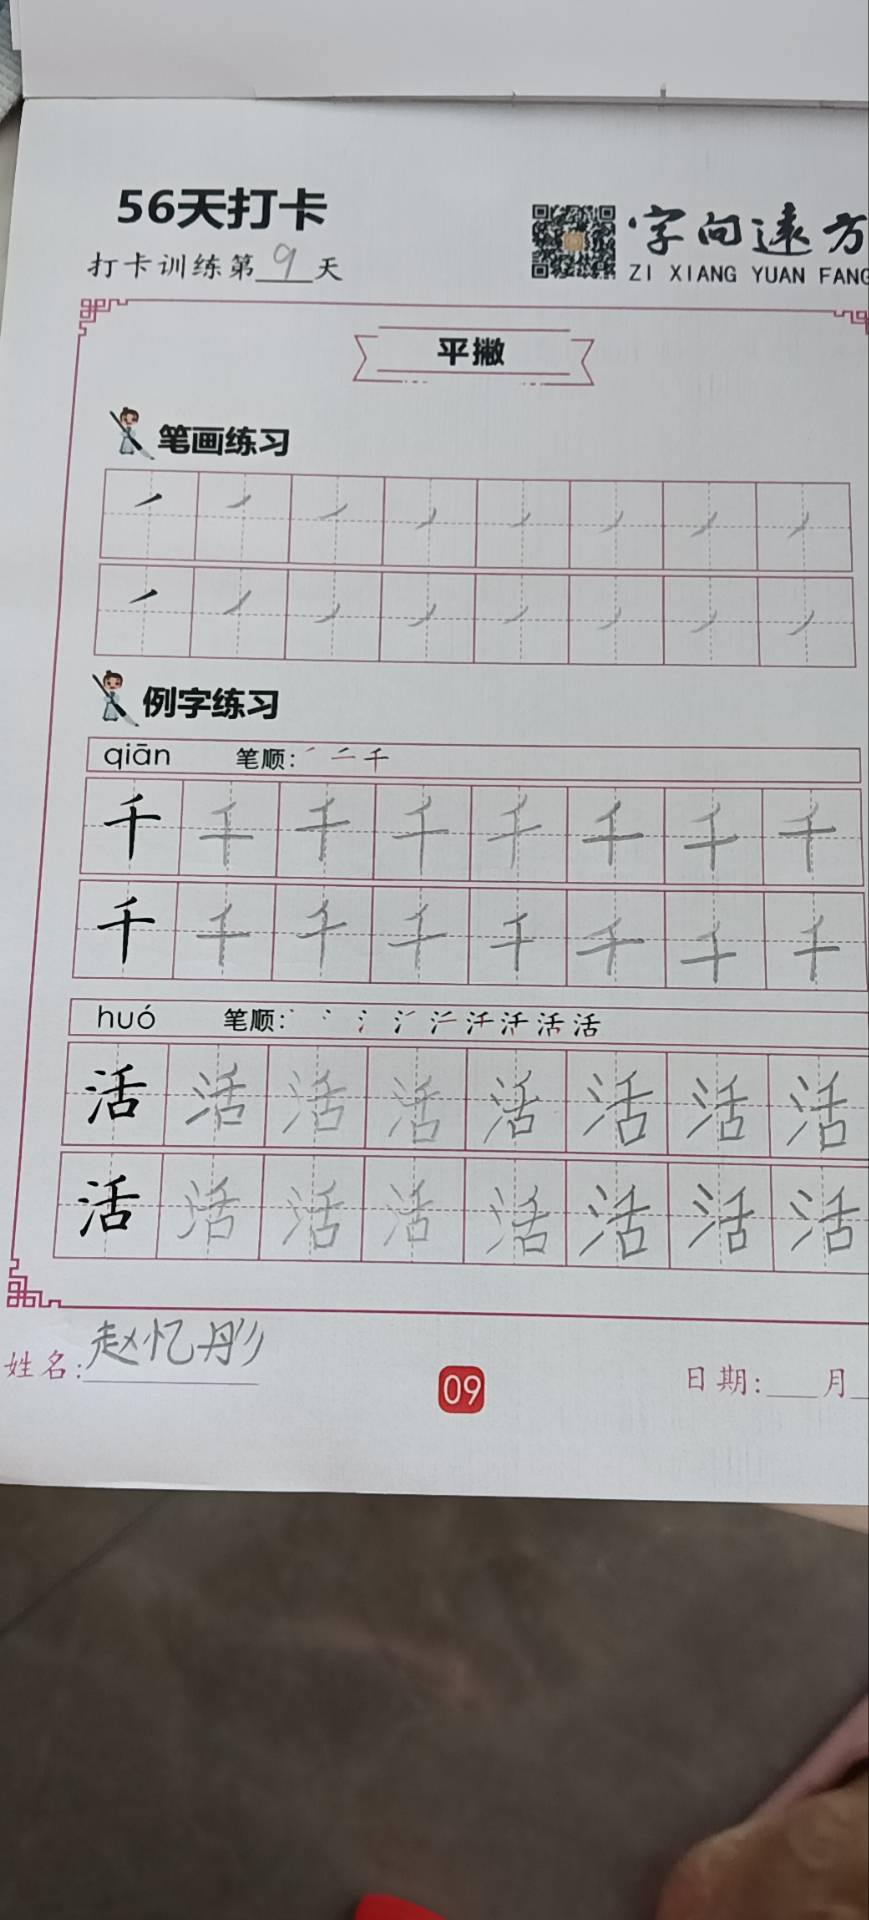 56天打卡
打卡训练第9天
字向远方
ZI XIANG YUAN FANG
平撇
笔画练习
例字练习
qiān 笔顺: 一 二 千
千 千 千 千 千 千 千 千
千 千 千 千 千 千 千 千
huó 笔顺: 活
活 活 活 活 活 活 活 活
活 活 活 活 活 活 活 活
姓名: 赵忆彤
09
日期: 月